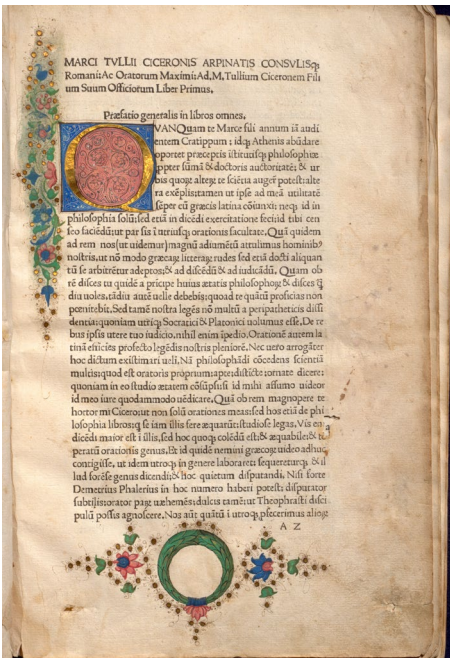 MARCI TVLLII CICERONIS ARPINATIS CONSVLISq;
Romani:Ac Oratorum Maximi:Ad.M.Tullium Ciceronem Fili
um Suum Officiorum Liber Primus.
Præfatio generalis in libros omnes.
QVANQuam te Marce fili annum iā audi
entem Cratippum: idq; Athenis abūdare
oportet præceptis īstitutisq; philosophiæ
ꝓpter sūmā & doctoris auctoritatē: & ur
bis: quoꝝ alter te sciētia augere potest: alte
ra exēplis: tamen ut ipse ad meā utilitatē
sēper cū græcis latina cōiunxi: neq; id in
philosophia solū: sed etiā in dicēdi exercitatione feci: id tibi cen
seo faciēdū: ut par sis ī utriusq; orationis facultate. Quā quidem
ad rem nos (ut uidemur) magnū adiumētū attulimus hominibꝰ
nostris, ut nō modo græcaꝝ litteraꝝ rudes sed etiā docti aliquan
tū se arbitrētur adeptos: & ad discēdū & ad iudicādū. Quam ob
rē disces tu quidē a principe huius ætatis philosophoꝝ: & disces q̄
diu uoles. tādiu autē uelle debebis: quoad te quātū proficias non
pœnitebit. Sed tamē nostra legēs nō multū a peripatheticis dissi
dentia: quoniam utriq; Socratici & Platonici uolumus esse. De re
bus ipsis utere tuo iudicio. nihil enim īpedio. Orationē autem la
tinā efficies profecto legēdis nostris pleniorē. Nec uero arrogāter
hoc dictum existimari ueli. Nā philosophādi cōcedens scientiā
multis: quod est oratoris proprium: apte: distīcte: ornate dicere:
quoniam in eo studio ætatem cōsūpsi: si id mihi assumo uideor
id meo iure quodammodo uēdicare. Quā ob rem magnopere te
hortor mi Cicero: ut non solū orationes meas: sed hos etiā de phi
losophia libros: q̄ se iam illis fere æquarūt: studiose legas. Vis enī
dicēdi maior est ī illis. sed hoc quoq; colēdū est: & æquabile: & tē
peratū orationis genus. Et id quidē nemini græcoꝝ uideo adhuc
contigisse, ut idem utroq; in genere laboraret: sequereturq; & il
lud forēse genus dicendi: & hoc quietum disputandi. Nisi forte
Demetrius Phalerius in hoc numero haberi potest: disputator
subtilis: orator paꝝ uæhemēs: dulcis tamē: ut Theophrasti disci
pulū possis agnoscere. Nos aūt quātū ī utroq; ꝓfecerimus alioꝝ
A Z